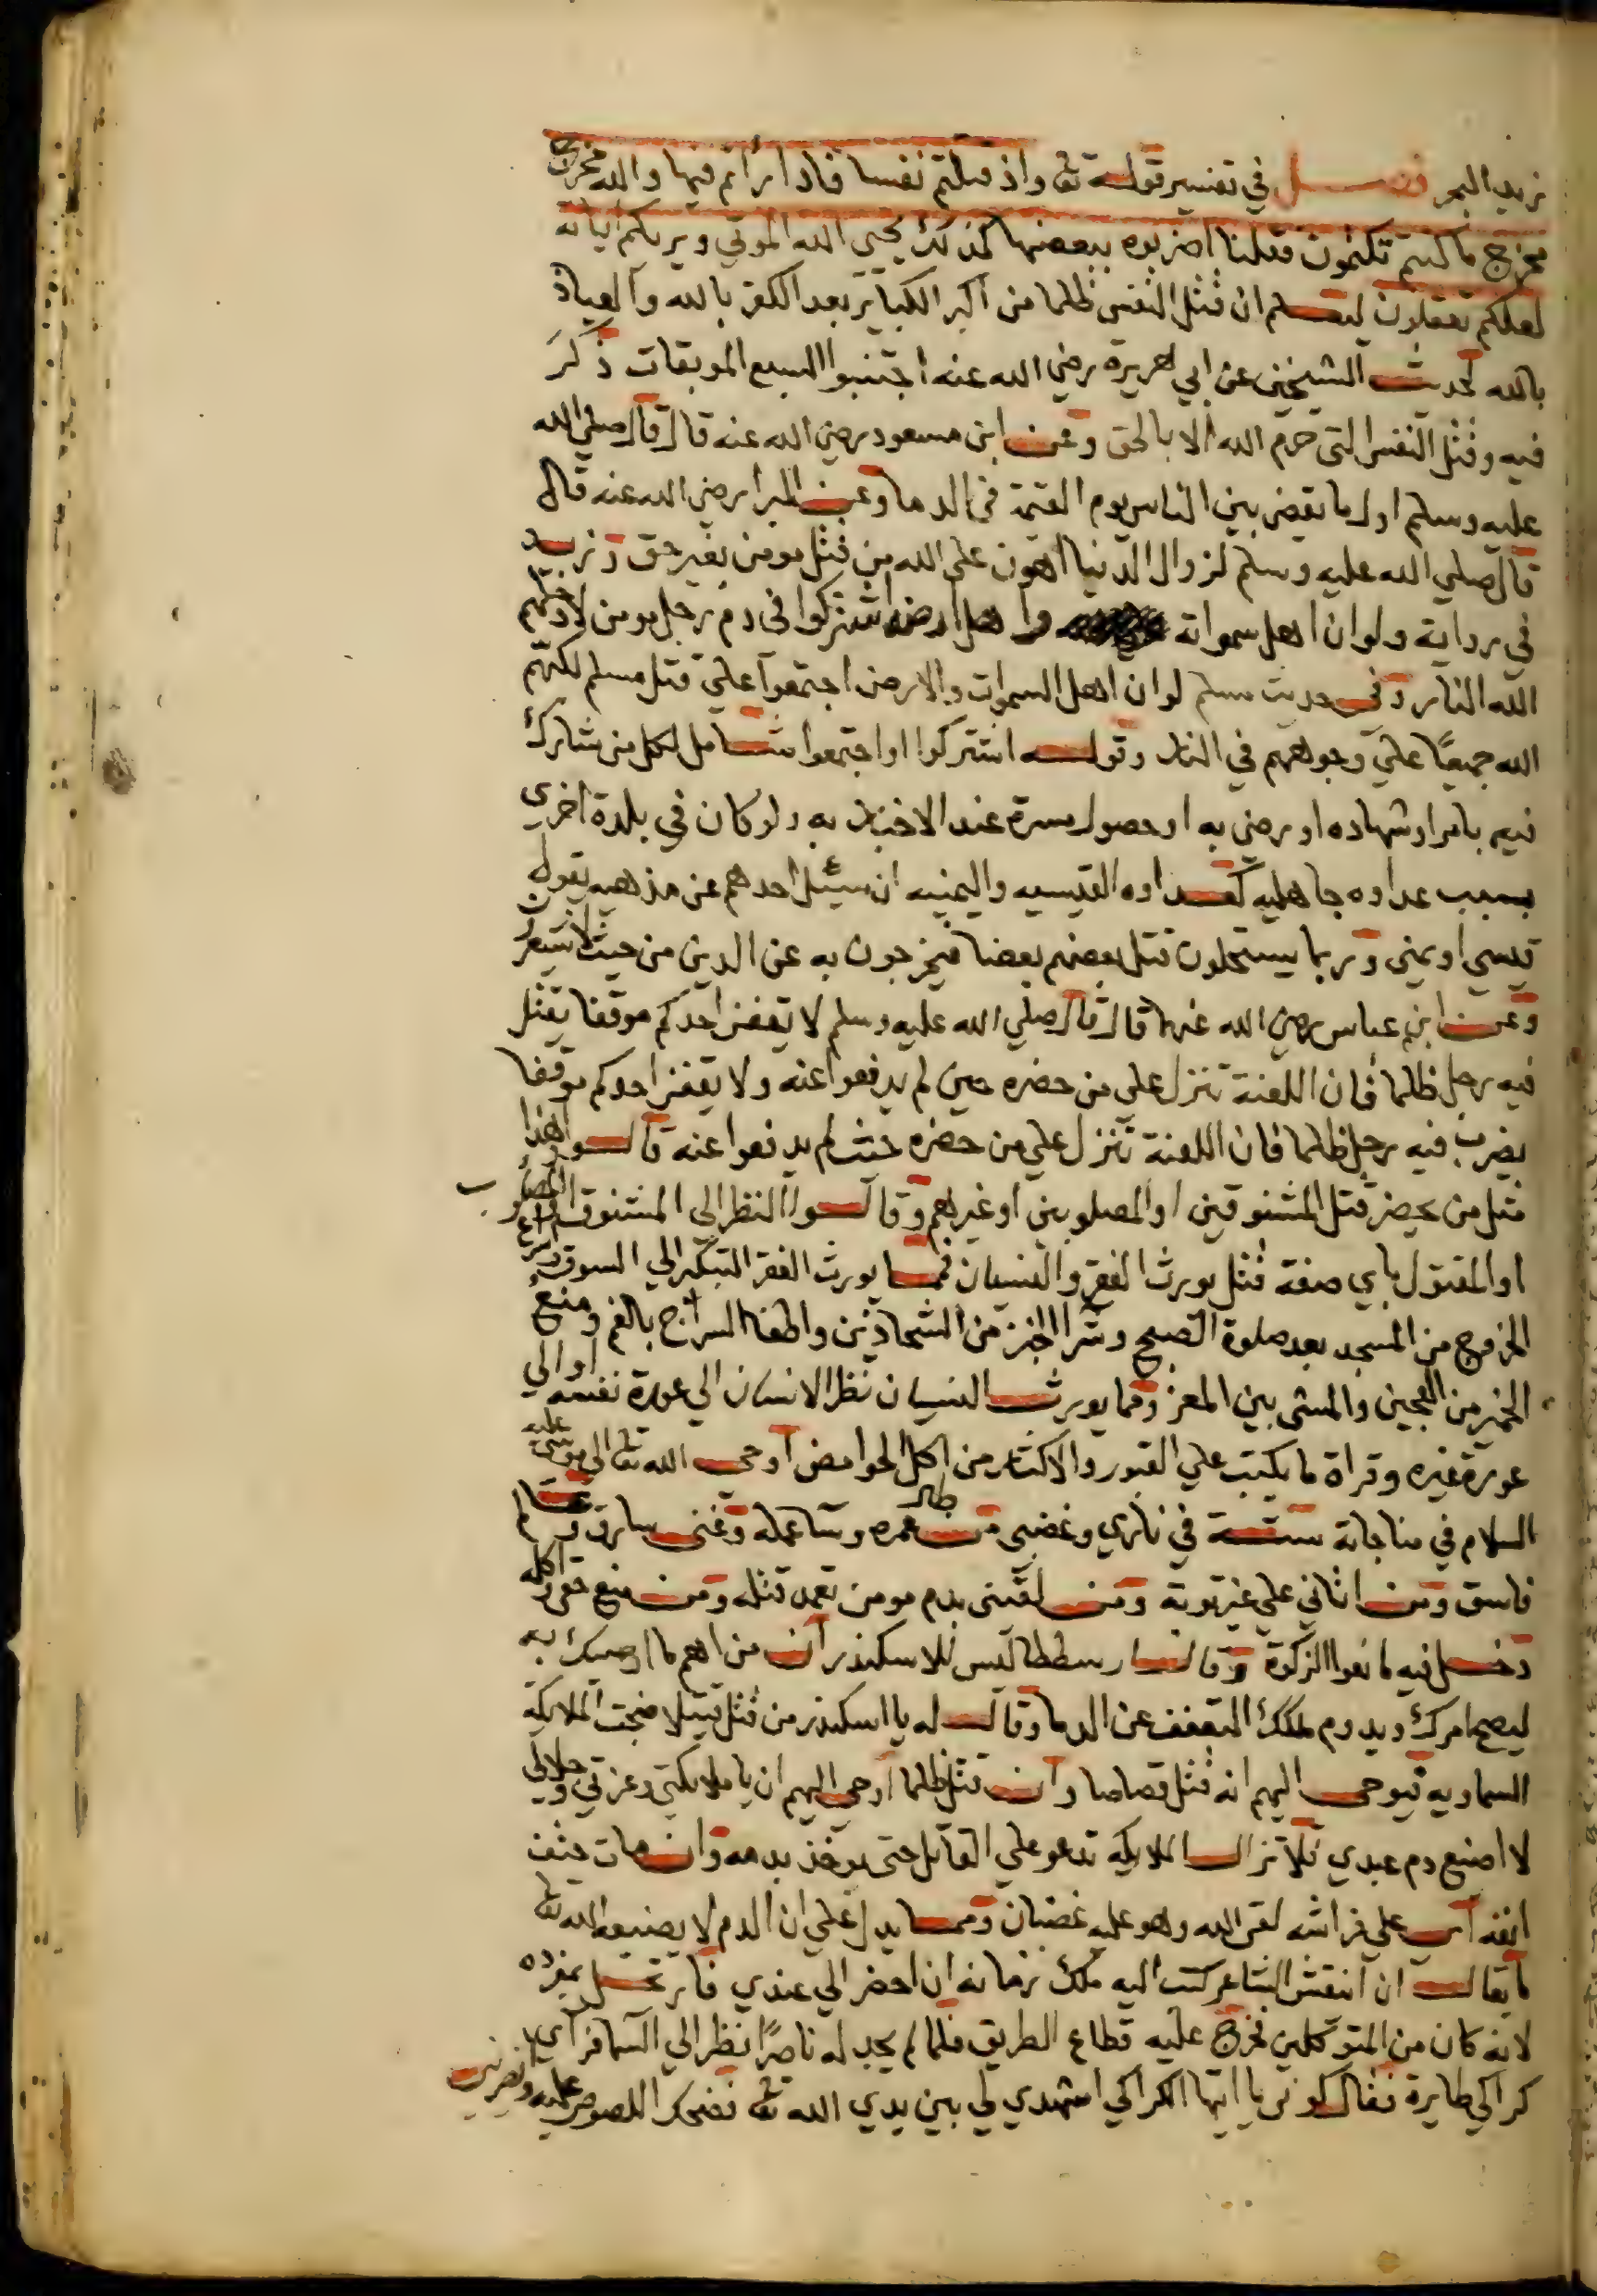 زبد البحر فصل في تفسير قوله تعا واذ قتلتم نفسا فادارأتم فيها والله مخرج
مخرج ما كنتم تكتمون فقلنا اضربوه ببعضها كذلك يحيى الله الموتي ويريكم اياته
لعلكم تعقلون ليعلم ان قتل النفس ظلما من اكبر الكباير بعد الكفر بالله والعياذ
بالله لحديث الشيخين عن ابي هريرة رضي الله عنه اجتنبوا السبع الموبقات ذكر
فيه وقتل النفس التي حرم الله الا بالحق وعن ابن مسعود رضي الله عنه قال قال صلي الله
عليه وسلم اول ما يقضي بين الناس يوم القيمة في الدما وعن البرا رضي الله عنه قال
قال صلي الله عليه وسلم لزوال الدنيا اهون على الله من قتل مومن بغير حق وزيد
في رواية ولو ان اهل سمواته واهل ارضه اشتركوا في دم رجل مومن لادخلهم
الله النار وفي حديث مسلم لو ان اهل السموات والارض اجتمعوا علي قتل مسلم لكبهم
الله جميعًا علي وجوههم في النار وقوله اشتركوا او اجتمعوا شامل لكل من شارك
فيه بامر او شهاده او رضي به او حصول مسرة عند الاخبار به ولو كان في بلدة اخري
بسبب عداوه جاهليه كعداوه القيسيه واليمنيه ان سئل احدهم عن مذهبه يقول
قيسي او يمني وربما يستحلون قتل بعضهم بعضا فيخرجون به عن الدين من حيث لا يشعرون
وعن ابن عباس رضي الله عنهما قال قال صلي الله عليه وسلم لا يقفن احدكم موقفا يقتل
فيه رجل ظلما فان اللعنة تنزل على من حضره حين لم يدفعوا عنه ولا يقفن احدكم موقفا
يضرب فيه رجل ظلما فان اللعنة تنزل علي من حضره حيث لم يدفعوا عنه قالوا وهذا
مثل من يحضر قتل المشنوقين او المصلوبين او غيرهم وقالوا النظر الي المشنوق او المصلوب
او المقتول باي صفة قتل يورث الفقر والنسيان فمما يورث الفقر التبكير الي السوق وسرعة
الخروج من المسجد بعد صلوة الصبح وشرا الخبز من الشحاذين واطفا السراج بالفم ومنع
الخمير من العجين والمشى بين المعز ومما يورث النسيان نظر الانسان الي عورة نفسه او الي
عورة غيره وقراة ما يكتب علي القبور والاكثار من اكل الحوامض اوحى الله تعا الى موسي عليه
السلام في مناجاته ستة في ناري وغضبى من طال عمره وسآ عمله وغنى سارق وعالم
فاسق ومن اتاني علي غير توبة ومن لقينى بدم مومن تعمد قتله ومن منع حق واكله
دخل فيه مانعوا الزكوة وقال ارسططاليس للاسكندر ان من اهم ما اوصيك به
ليصح امرك ويدوم ملكك التعفف عن الدما وقال له يا اسكندر من قتل قتيلا ضجت الملايكة
السماويه فيوحى اليهم انه قتل قصاصا وان قتل ظلما اوحى اليهم ان يا ملايكتي وعزتي وجلالي
لا اضيع دم عبدي فلا تزال الملايكه تدعو علي القاتل حتى يوخذ بدمه وان مات حتف
انفه اى علي فراشه لقى الله وهو عليه غضبان ومما يدل علي ان الدم لا يضيعه الله تعا
ما يقال ان انقش الشاعر كتب اليه ملك زمانه ان احضر الي عندي فارتحل بمفرده
لانه كان من المتوكلين فخرج عليه قطاع الطريق فلما لم يجد له ناصرًا نظر الي السما فراي
كراكي طايرة فقال لو ترى يا ايتها الكراكي اشهدي لي بين يدي الله تعا فضحك اللصوص عليه